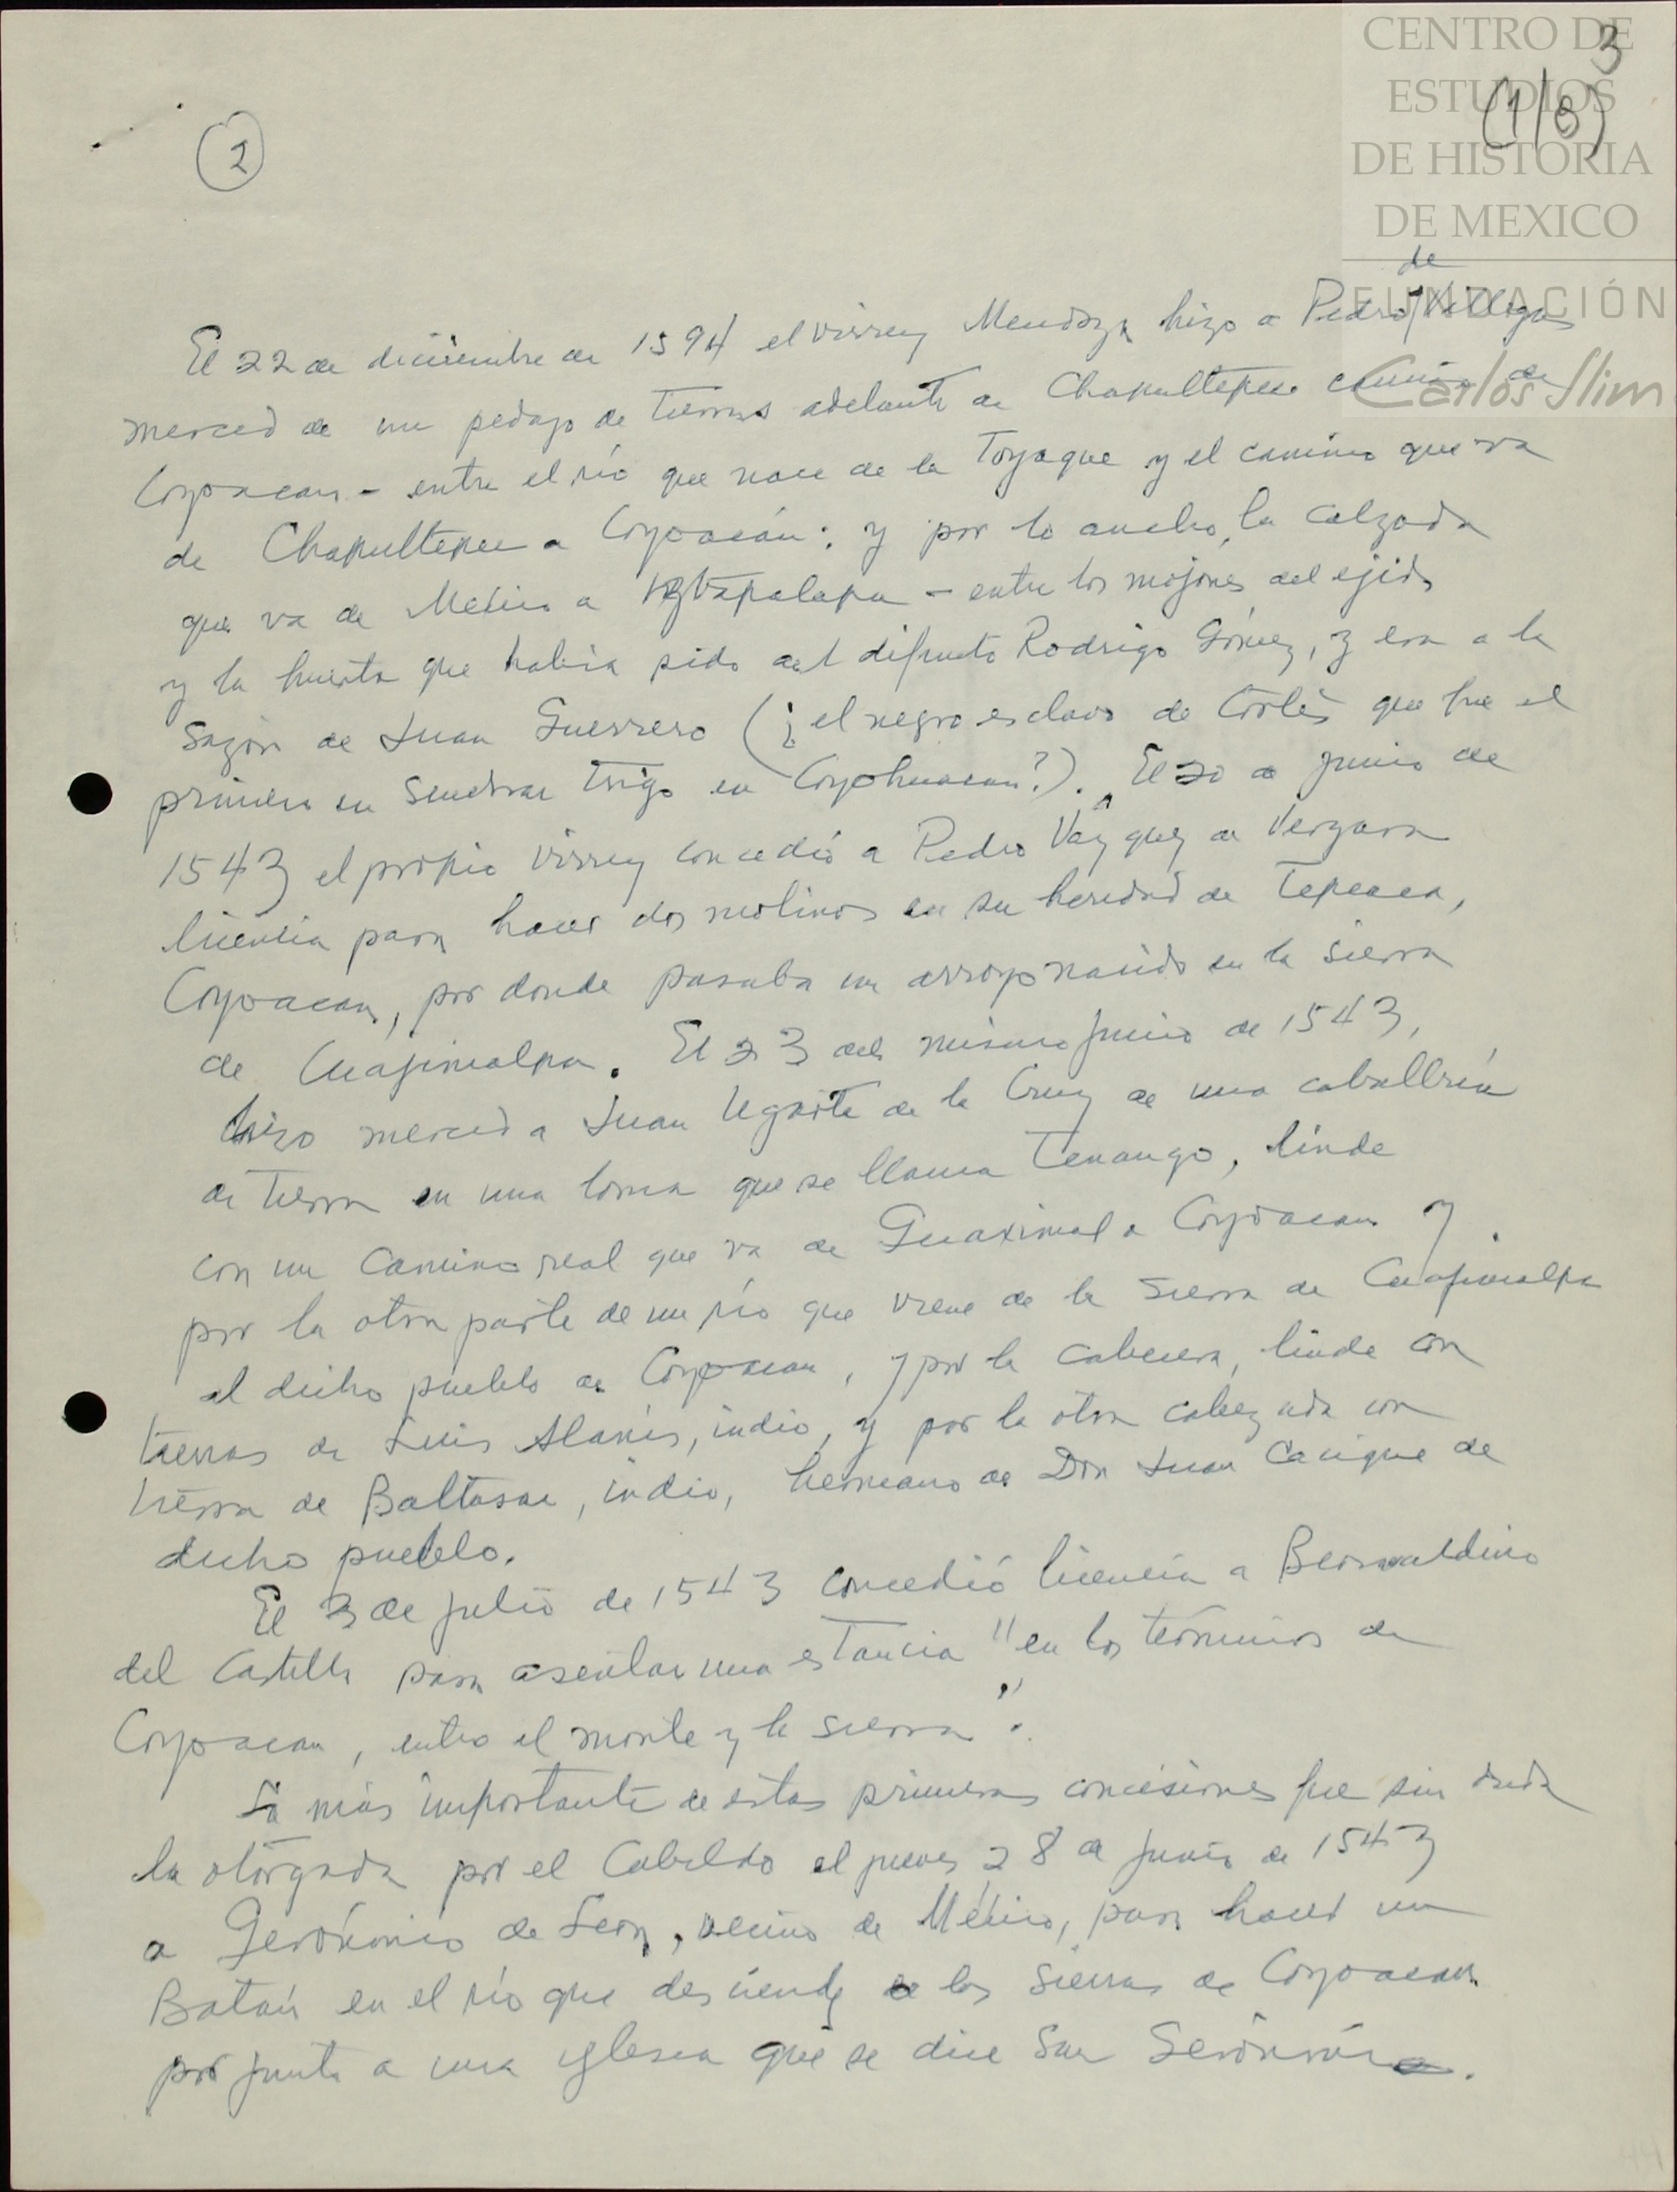 CENTRO DE
ESTUDIOS
DE HISTORIA
DE MEXICO
FUNDACIÓN
Carlos Slim
3
(1/8)
2
El 22 de diciembre de 1594 el virrey Mendoza hizo a Pedro de Villegas
merced de un pedazo de tierras adelante de Chapultepec camino de
Coyoacan - entre el río que nace de la Toyaque y el camino que va
de Chapultepec a Coyoacán; y por lo ancho, la calzada
que va de México a Iztapalapa - entre los mojones del ejido
y la huerta que había sido del difunto Rodrigo Gómez, y era a la
sazón de Juan Guerrero (¿el negro esclavo de Cortés que fue el
primero en sembrar trigo en Coyohuacan?). El 20 de junio de
1543 el propio virrey concedió a Pedro Vazquez de Vergara
licencia para hacer dos molinos en su heredad de Tepeaca,
Coyoacan, por donde pasaba un arroyo nacido en la sierra
de Cuajimalpa. El 23 del mismo junio de 1543,
hizo merced a Juan Ugarte de la Cruz de una caballería
de tierra en una loma que se llama Tenango, linde
con un camino real que va de Guaximal a Coyoacan y
por la otra parte de un río que viene de la sierra de Cuajimalpa
al dicho pueblo de Coyoacan, y por la cabecera, linde con
tierras de Luis Alanis, indio, y por la otra cabezada con
tierra de Baltasar, indio, hermano de Don Juan Cacique de
dicho pueblo.
El 3 de julio de 1543 concedió licencia a Bernaldino
del Castillo para asentar una estancia "en los términos de
Coyoacan, entre el monte y la sierra".
La más importante de estas primeras concesiones fue sin duda
la otorgada por el Cabildo el jueves 28 de junio de 1543
a Gerónimo de Leon, vecino de México, para hacer un
Batán en el río que desciende de las sierras de Coyoacan
por junto a una yglesia que se dice San Gerónimo.